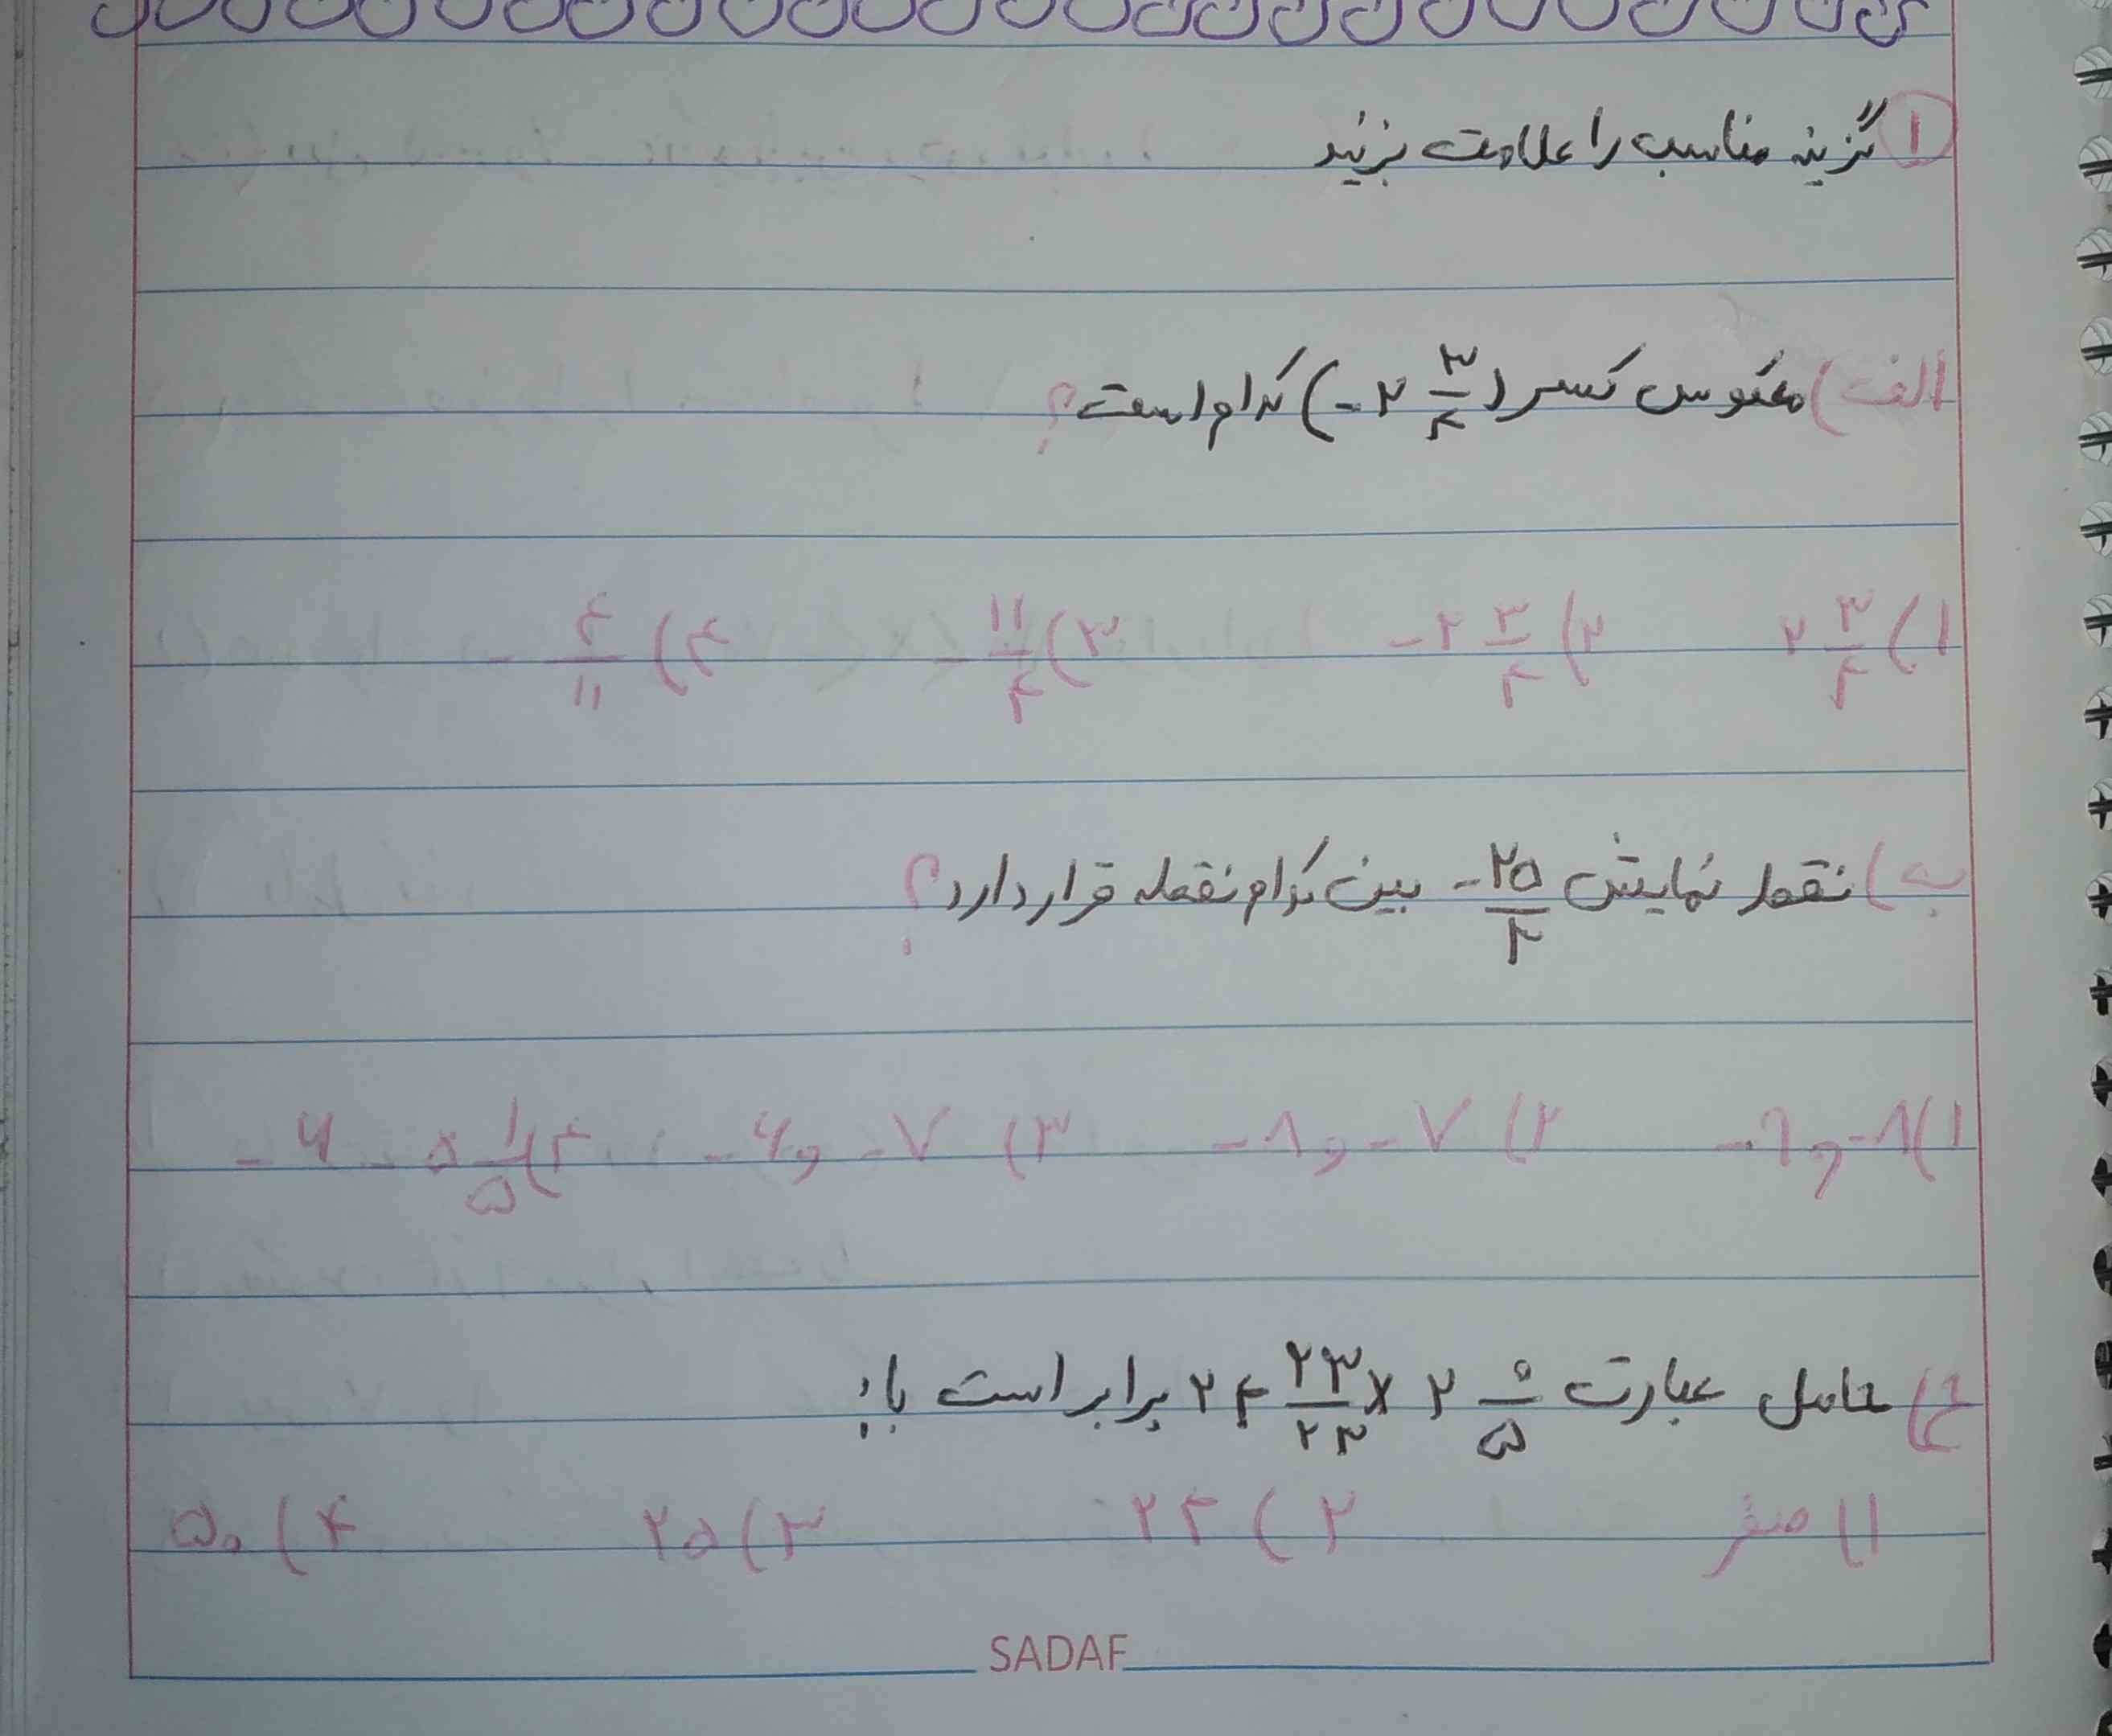 ① گزینه مناسب را علامت بزنید
الف) معکوس کسر (۲ ۳/۴ -) کدام است؟
۱) ۲ ۳/۴ ۲) ۲ ۳/۴ - ۳) ۱۱/۴ - ۴) ۴/۱۱ -
ب) نقطه نمایش ۲۵/۴ - بین کدام نقطه قرار دارد؟
۱) ۸- و ۹- ۲) ۷- و ۸- ۳) ۷- و ۶- ۴) ۵ ۱/۵ - ۶ -
ج) حاصل عبارت ۲ ۰/۵ × ۲۴ ۲۳/۲۳ برابر است با:
۱) صفر ۲) ۲۴ ۳) ۲۵ ۴) ۵۰
SADAF